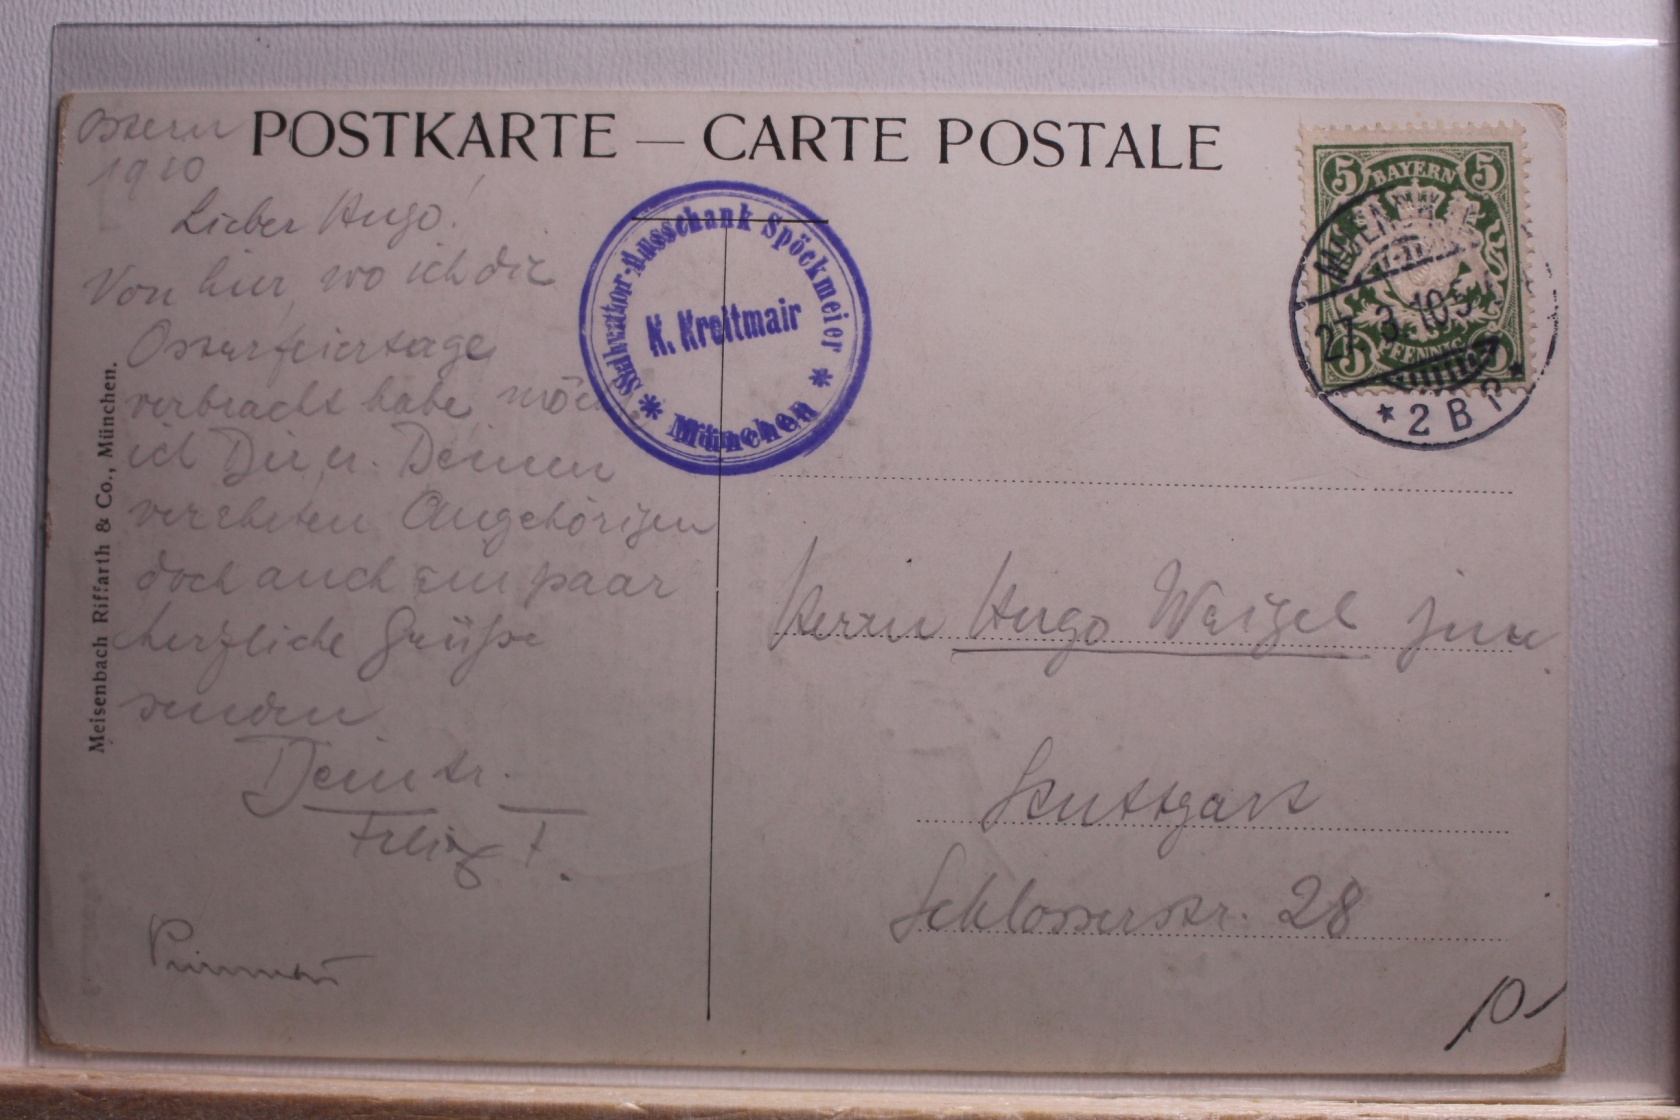 Ostern
1910
POSTKARTE — CARTE POSTALE
Lieber Hugo!
Von hier, wo ich die
Osterfeiertage
verbracht habe möcht
ich Dir u. Deinen
verehrten Angehörigen
doch auch ein paar
herzliche Grüße
senden
Dein tr.
Felix T.
Meisenbach Riffarth & Co., München.
Salvator-Ausschank Spöckmeier
K. Kreitmair
* München *
5 BAYERN 5
5 PFENNIG 5
MUENCHEN
27. 3. 10 5-
* 2 B P *
Herrn Hugo Weigel jun.
Stuttgart
Schlosserstr. 28
10-